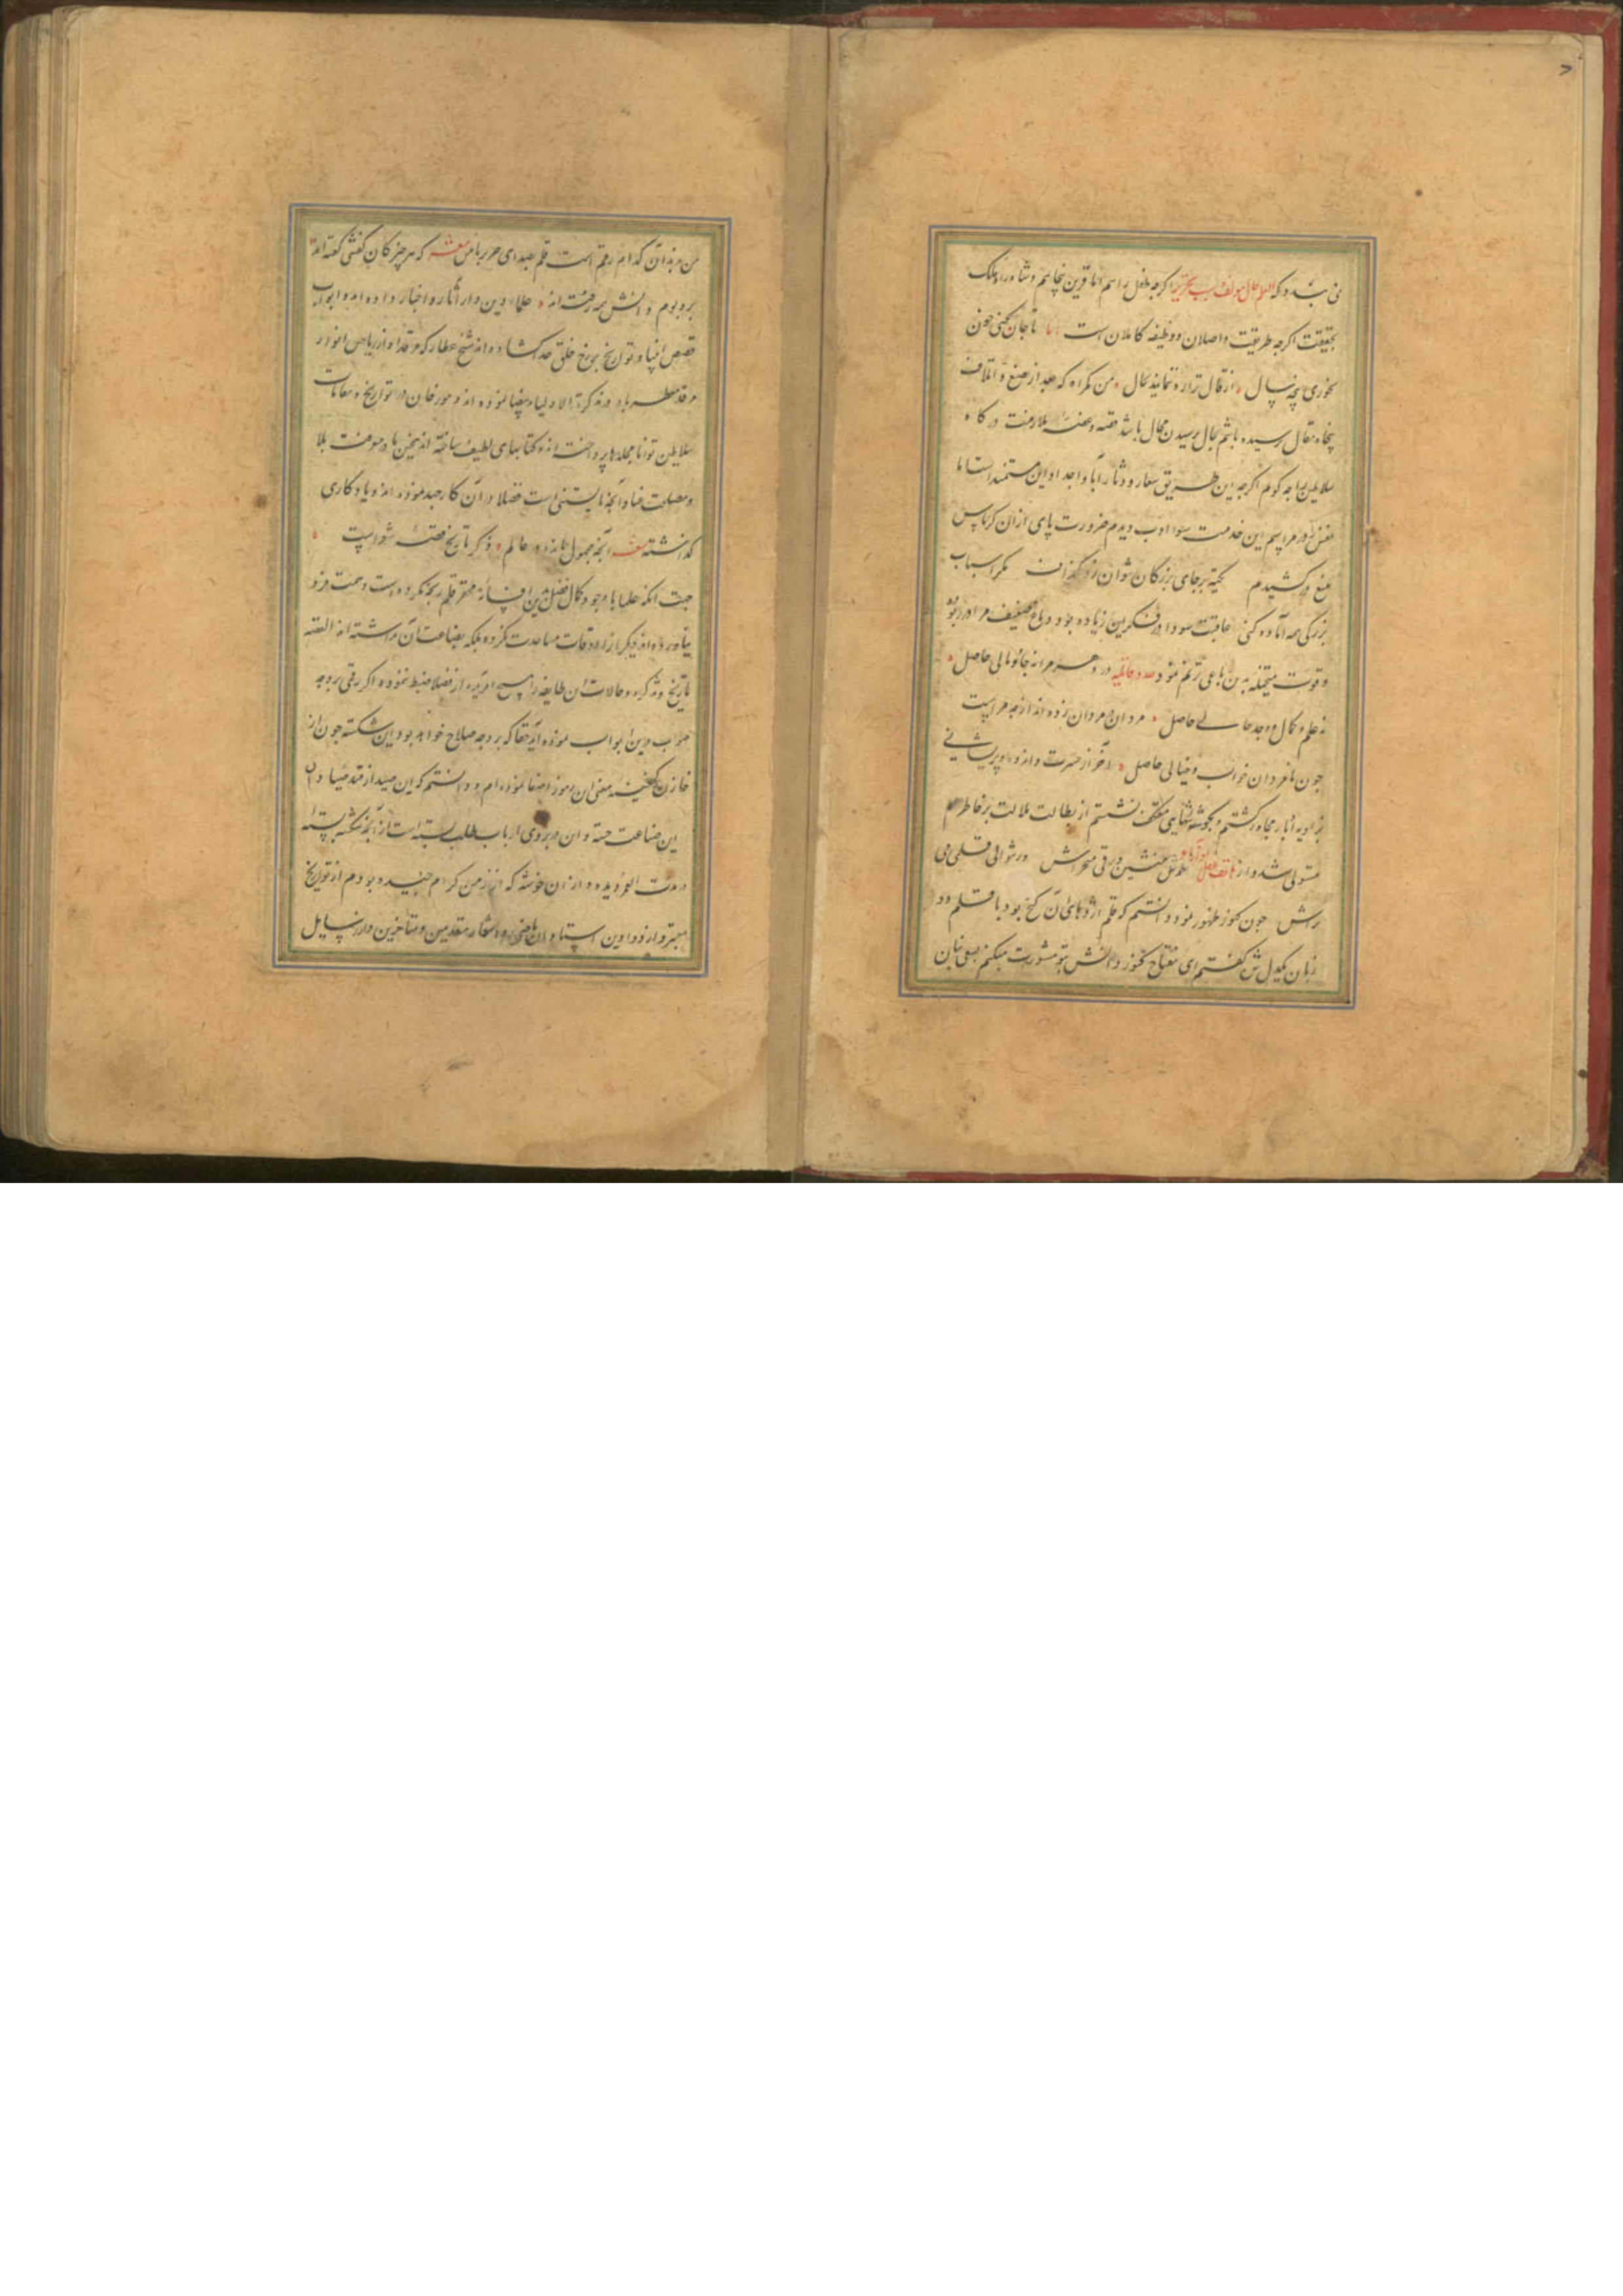 ۷
می‌بندد که اگرچه طفل راهم اما قرین پنجاهم و شاه راه ملک
حقیقت اگرچه طریقت واصلان و وظیفه کاملان است اما تا جان نکنی خون
نخوری پنجه سال از قال ترا ره ننمایند بحال من گمراه که بعد از صنع و اتلاف
پنجاه بمقال رسیده باشم بحال رسیدن محال باشد قصه و غصه ملازمت درگاه
سلاطین را چه گویم اگرچه این طریق شعار و دثار آبا و اجداد این مستمند است اما
نفس را در مراسم این خدمت سوء ادب دیدم ضرورت پای از آن کریاس
منع درکشیدم تکیه بر جای بزرگان نتوان زد بگزاف مگر اسباب
بزرگی همه آماده کنی عاقبت سودا در فکر من زیاده بود دماغ ضعیف مرا در ربود
و قوت متخیله بدین رباعی ترنم نمود در دهر مرا نه جاه و مالی حاصل
نه علم و کمال و وجد حالی حاصل مردان همه مردان زده‌اند از چه مراست
چون نامردان خواب و خیالی حاصل آخر از حسرت و اندوه و پریشانی
بزاویه ادبار مجاور گشتم و بگوشه تنهایی معتکف نشستم از بطالت ملالت بر خاطرم
مستولی شد و از هاتف عقل منشین ورقی میخراش در نتوانی قلمی می
تراش چون کنوز ظهور نمود دانستم که قلم اژدهای آن گنج بود با قلم دو
زبان یکدل شده گفتم ای مفتاح کنوز دانش بتو مشورت میکنم سعی بنان
من در بدان کدام رقم است قلم بصدای صریر با من گفت که هر چیز کان گفتنی گفته‌اند
بر و بوم دانش همه رفته‌اند علماء دین در آثار و اخبار داده‌اند و ابواب
قصص انبیا و تواریخ بر رخ خلق خدا گشاده‌اند شیخ عطار که مرقد او از ریاض انوار
مرقد معطر باد در تذکرة الاولیا ید بیضا نموده‌اند و مورخان در تواریخ و مقامات
سلاطین توانا مجلدها پرداخته‌اند و کتابهای لطیف ساخته‌اند همچنین در معرفت بلاد
و مصلحت عباد آنچه بایستنی است فضلا در آن کار جهد نموده‌اند و یادگاری
گذاشته آنچه مجهول مانده در عالم ذکر تاریخ و قصه شعراست
جهت آنکه علما با وجود کمال فضل بدین افسانه محقر قلم رنجه نکرده‌اند و همت فرو
نیاورده‌اند و دیگران را اوقات مساعدت نکرده بلکه بضاعت آن نداشته‌اند القصه
تاریخ و تذکره و حالات این طایفه را هیچ آفریده از فضلا ضبط ننموده اگر رقمی بر وجه
صواب درین ابواب نموده آید حقا که بر وجه صلاح خواهد بود این شکسته چون از
خازن گنجینه معنی این رموز اصغا نموده‌ام و دانستم که این صید از قید صیادان
این صناعت جسته و این در بر روی ارباب طلب بسته است از آنچه شکسته بسته
در مدت العمر دیده و از آن خوشه که از خرمن کرام چیده بودم از تواریخ
معتبره و از دواوین استادان ماضی و اشعار متقدمین و متأخرین و از رسایل